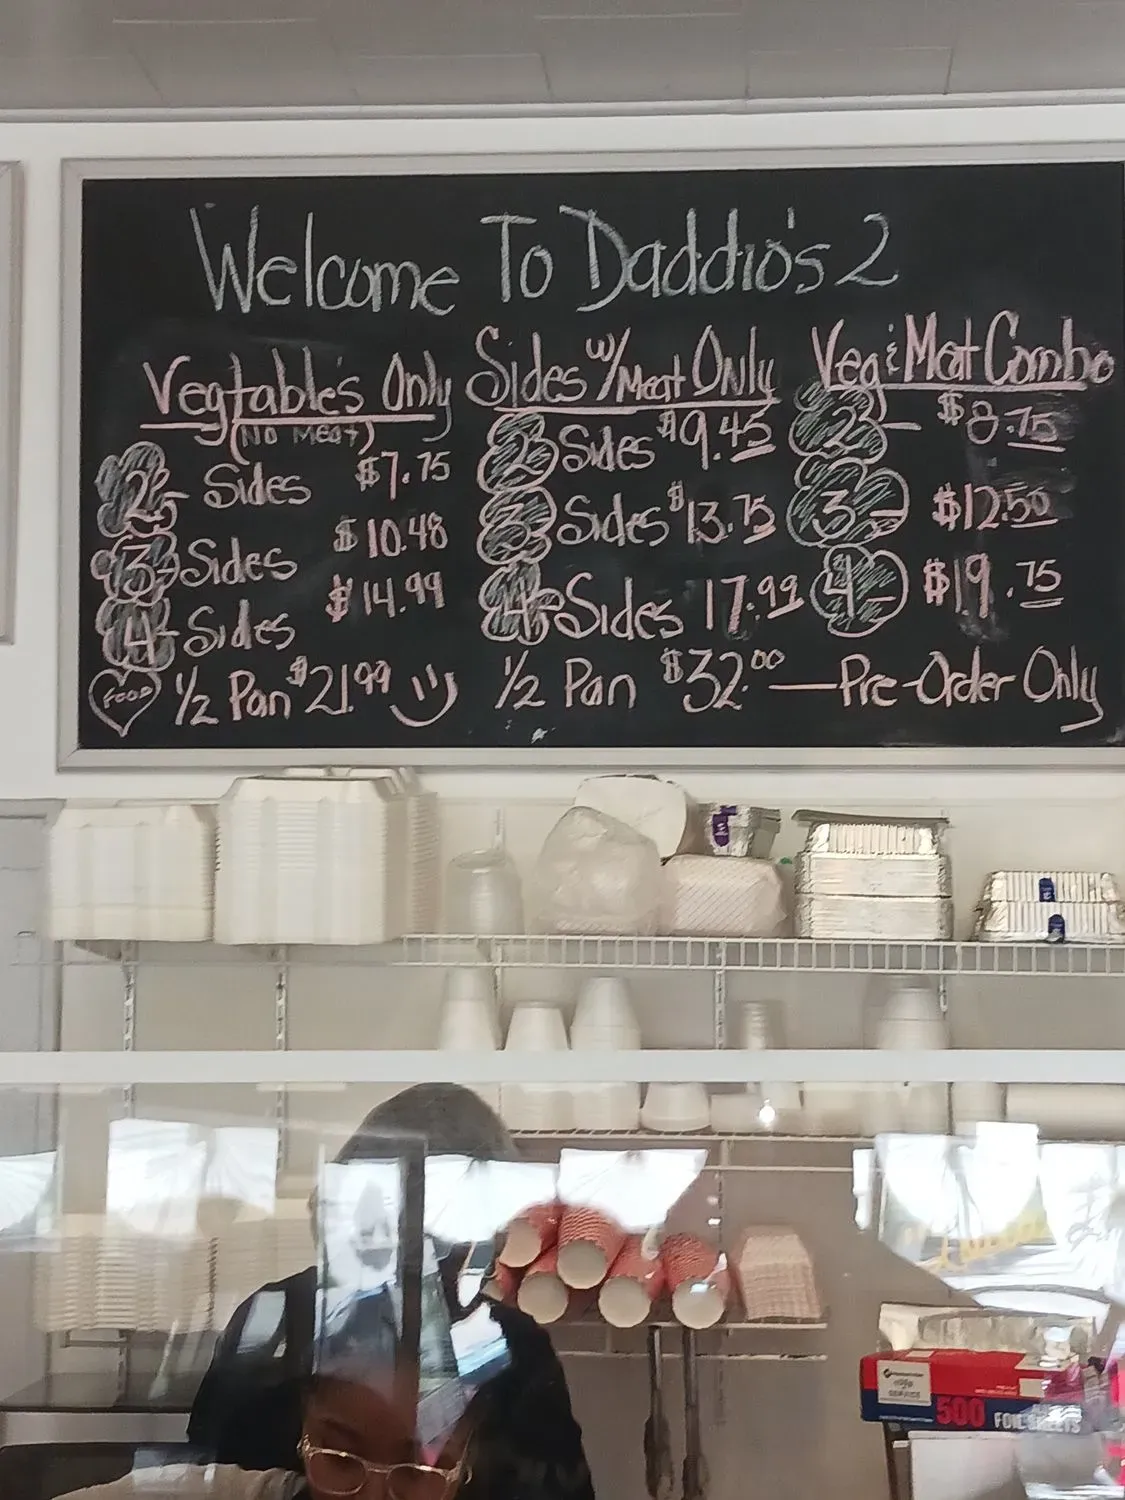 Welcome To Daddio's 2
Vegtable's Only
(No Meat)
2 - Sides $7.75
3 Sides $10.48
4 - Sides $14.99
FOOD 1/2 Pan $21.99
Sides w/Meat Only
2 Sides $9.45
3 Sides $13.75
4 Sides 17.99
1/2 Pan $32.00 — Pre-Order Only
Veg & Meat Combo
2 - $8.75
3 - $12.50
4 - $19.75
500 FOIL SHEETS